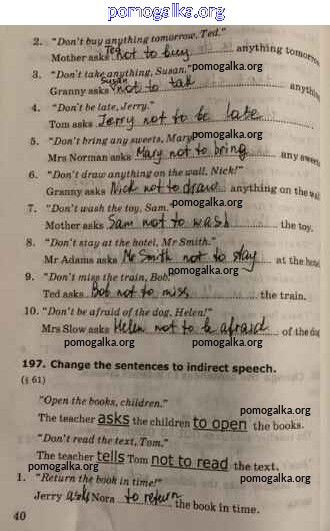 pomogalka.org
2. "Don't buy anything tomorrow, Ted."
Mother asks Ted not to buy anything tomorrow
pomogalka.org
3. "Don't take anything, Susan."
Granny asks Susan not to tak anythin
pomogalka.org
4. "Don't be late, Jerry."
Tom asks Jerry not to be late
5. "Don't bring any sweets, Mary
pomogalka.org
Mrs Norman asks Mary not to bring any swee
6. "Don't draw anything on the wall, Nick!"
Granny asks Nick not to draw anything on the wal
7. "Don't wash the toy, Sam.
pomogalka.org
Mother asks Sam not to wash the toy.
8. "Don't stay at the hotel, Mr Smith."
pomogalka.org
Mr Adams asks Mr Smith not to stay at the hote
pomogalka.org
9. "Don't miss the train, Bob.
pomogalka.org
Ted asks Bob not to miss the train.
10. "Don't be afraid of the dog, Helen!"
Mrs Slow asks Helen not to be afraid of the dog
pomogalka.org
197. Change the sentences to indirect speech.
(§ 61)
pomogalka.org
"Open the books, children."
pomogalka.org
The teacher asks the children to open the books.
"Don't read the text, Tom."
pomogalka.org
The teacher tells Tom not to read the text.
pomogalka.org
pomogalka.org
1. "Return the book in time!"
Jerry asks Nora to return the book in time.
pomogalka.org
40
pomogalka.org